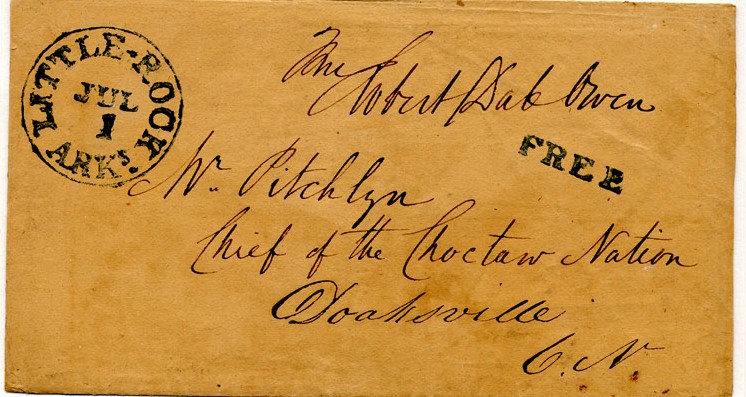 LITTLE-ROCK
JUL
1
ARKS.
Robert Dale Owen
FREE
Mr. Pitchlyn
Chief of the Choctaw Nation
Doaksville
C. N.